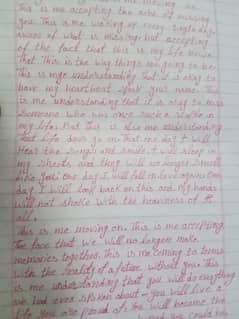 This is me accepting the ache of missing
you. This is me waking up every single day
aware of what is missing but accepting
of the fact that this is my life now.
That this is the way things are going to be.
This is me understanding that it is okay to
have my heartbeat speak your name. This
is me understanding that it is okay to miss
someone who was once such a staple in
my life. But this is also me understanding
that life does go on that one day I will
hear the songs and smile. I will sleep in
my sheets and they will no longer smell
like you. One day I will fall in love again. One
day I will look back on this and my hands
will not shake with the heaviness of it
all.
This is me moving on. This is me accepting
the fact that we will no longer make
memories together. This is me coming to terms
with the reality of a future without you. This
is me understanding that you will do everything
we had ever spoken about - you will live a
life you are proud of. You will become the
you could